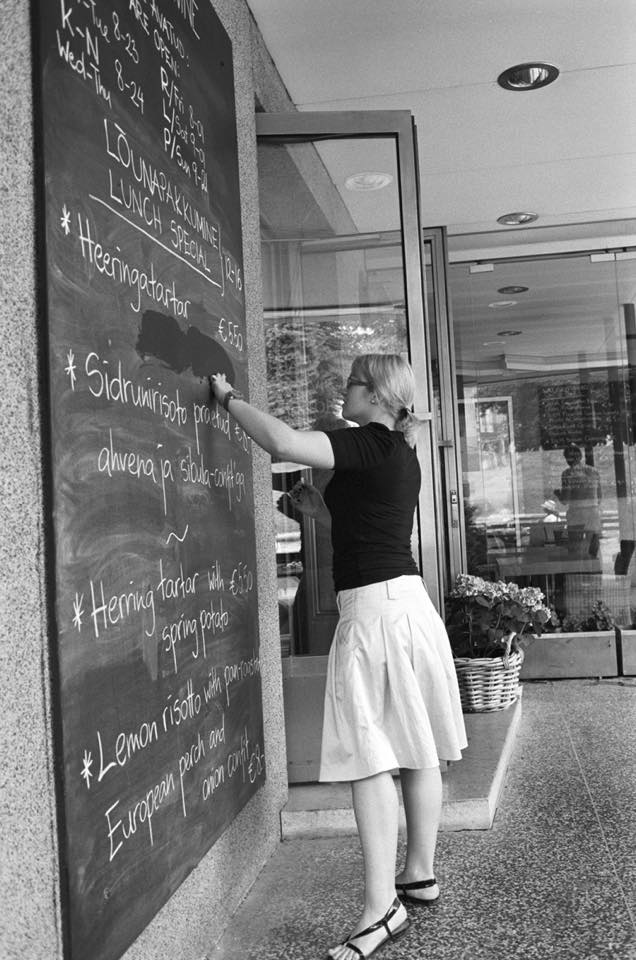 AVATUD:
ARE OPEN:
Tue 8-23
K-N
Wed-Thu 8-24
R/Fri
L/Sat
P/Sun
LÕUNAPAKKUMINE
LUNCH SPECIAL } 12-16
* Heeringatartar
€5.50
* Sidrunirisoto praetud
ahvena ja sibula-confit'ga
~
* Herring tartar with €5.50
spring potato
* Lemon risotto with
European perch and
onion confit